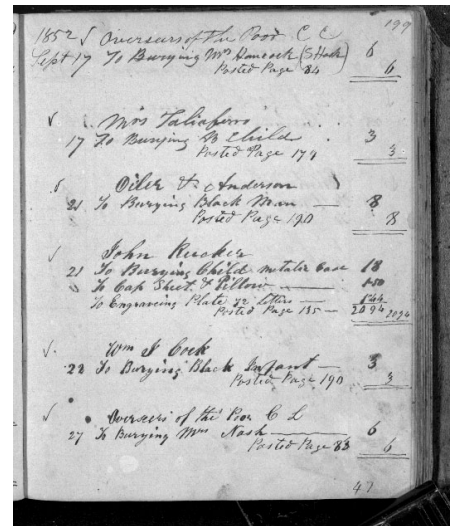 199
1852 √ Overseers of the Poor C C
Sept 17 To Burying Mrs Hancock 6
Posted Page 84 6
√ Mrs Taliaferro
17 To Burying Child 3
Posted Page 179 3
Oiler & Anderson
21 To Burying Black Man — 8
Posted Page 190 8
√ John Rucker
21 To Burying Child metalic Case 18
To Cap Sheet & Pillow — 1.50
To Engraving Plate 72 letters — 1.44
Posted Page 135 — 20 94 20 94
√ Wm J Cock
22 To Burying Black Infant — 3
Posted Page 190 3
√ Overseers of the Poor C L
27 To Burying Mrs Nash — 6
Posted Page 83 6
47